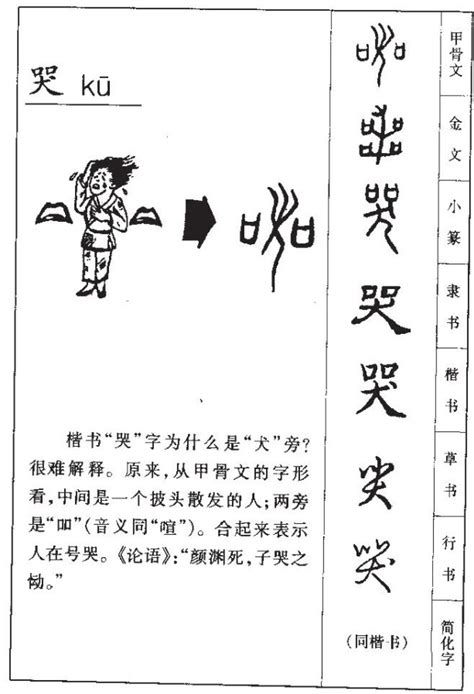 哭 kū
楷书“哭”字为什么是“犬”旁?
很难解释。原来,从甲骨文的字形
看,中间是一个披头散发的人;两旁
是“吅”(音义同“喧”)。合起来表示
人在号哭。《论语》:“颜渊死,子哭之
恸。”
甲骨文
金文
小篆
哭
隶书
哭
楷书
哭
草书
行书
(同楷书)
简化字